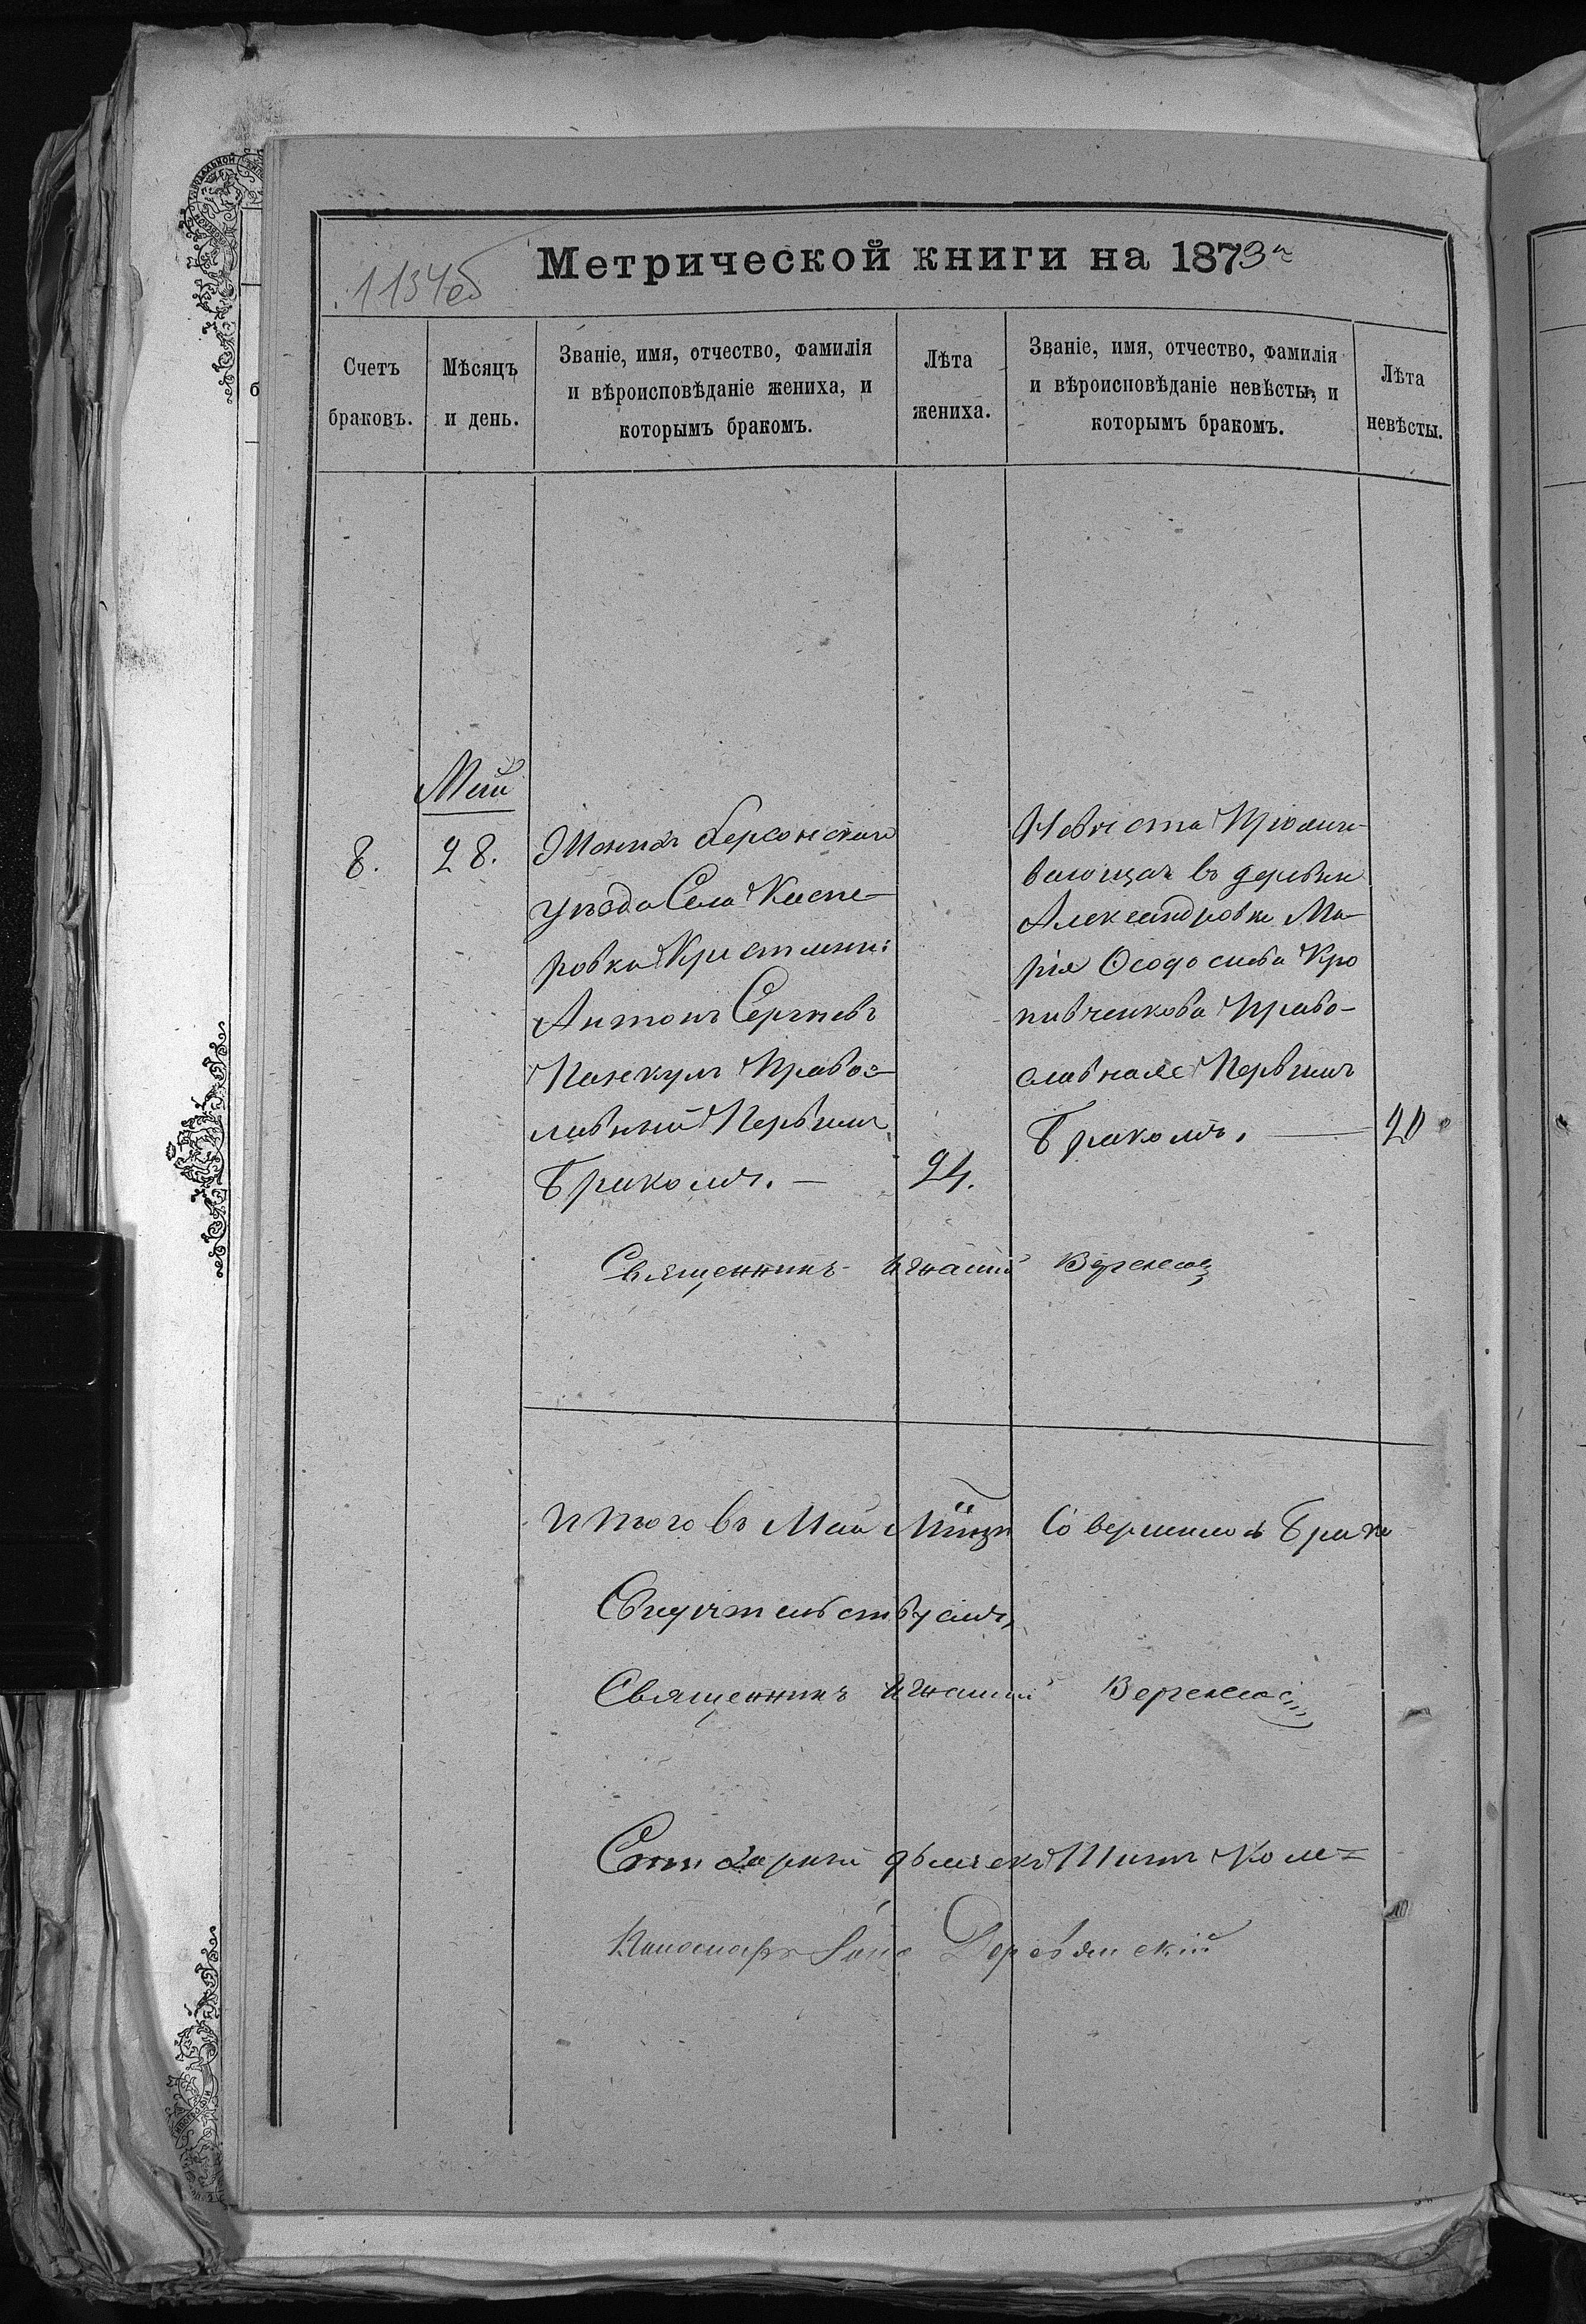 1134об
Метрической книги на 1873 г.
Счетъ браковъ.
Мѣсяцъ и день.
Званіе, имя, отчество, фамилія
и вѣроисповѣданіе жениха, и
которымъ бракомъ.
Лѣта
жениха.
Званіе, имя, отчество, фамилія
и вѣроисповѣданіе невѣсты, и
которымъ бракомъ.
Лѣта
невѣсты.
Май
8.
28.
Женихъ Херсонскаго
уѣзда Села Каспе-
ровки Крестьянин
Антонъ Сергѣевъ
Правос-
лавный Первымъ
Бракомъ. —
24.
Невѣста Прожи-
вающая въ деревни
Александровки Ма-
рія Өеодосиева Кро
пивченкова Право-
славная Первымъ
Бракомъ. —
20
Священникъ Игнатий
Итого въ Май Мѣсяцѣ Совершился Бракъ
Свидѣтельствуемъ,
Священникъ Игнатий
дьячекъ
Пономарь Деревянскій